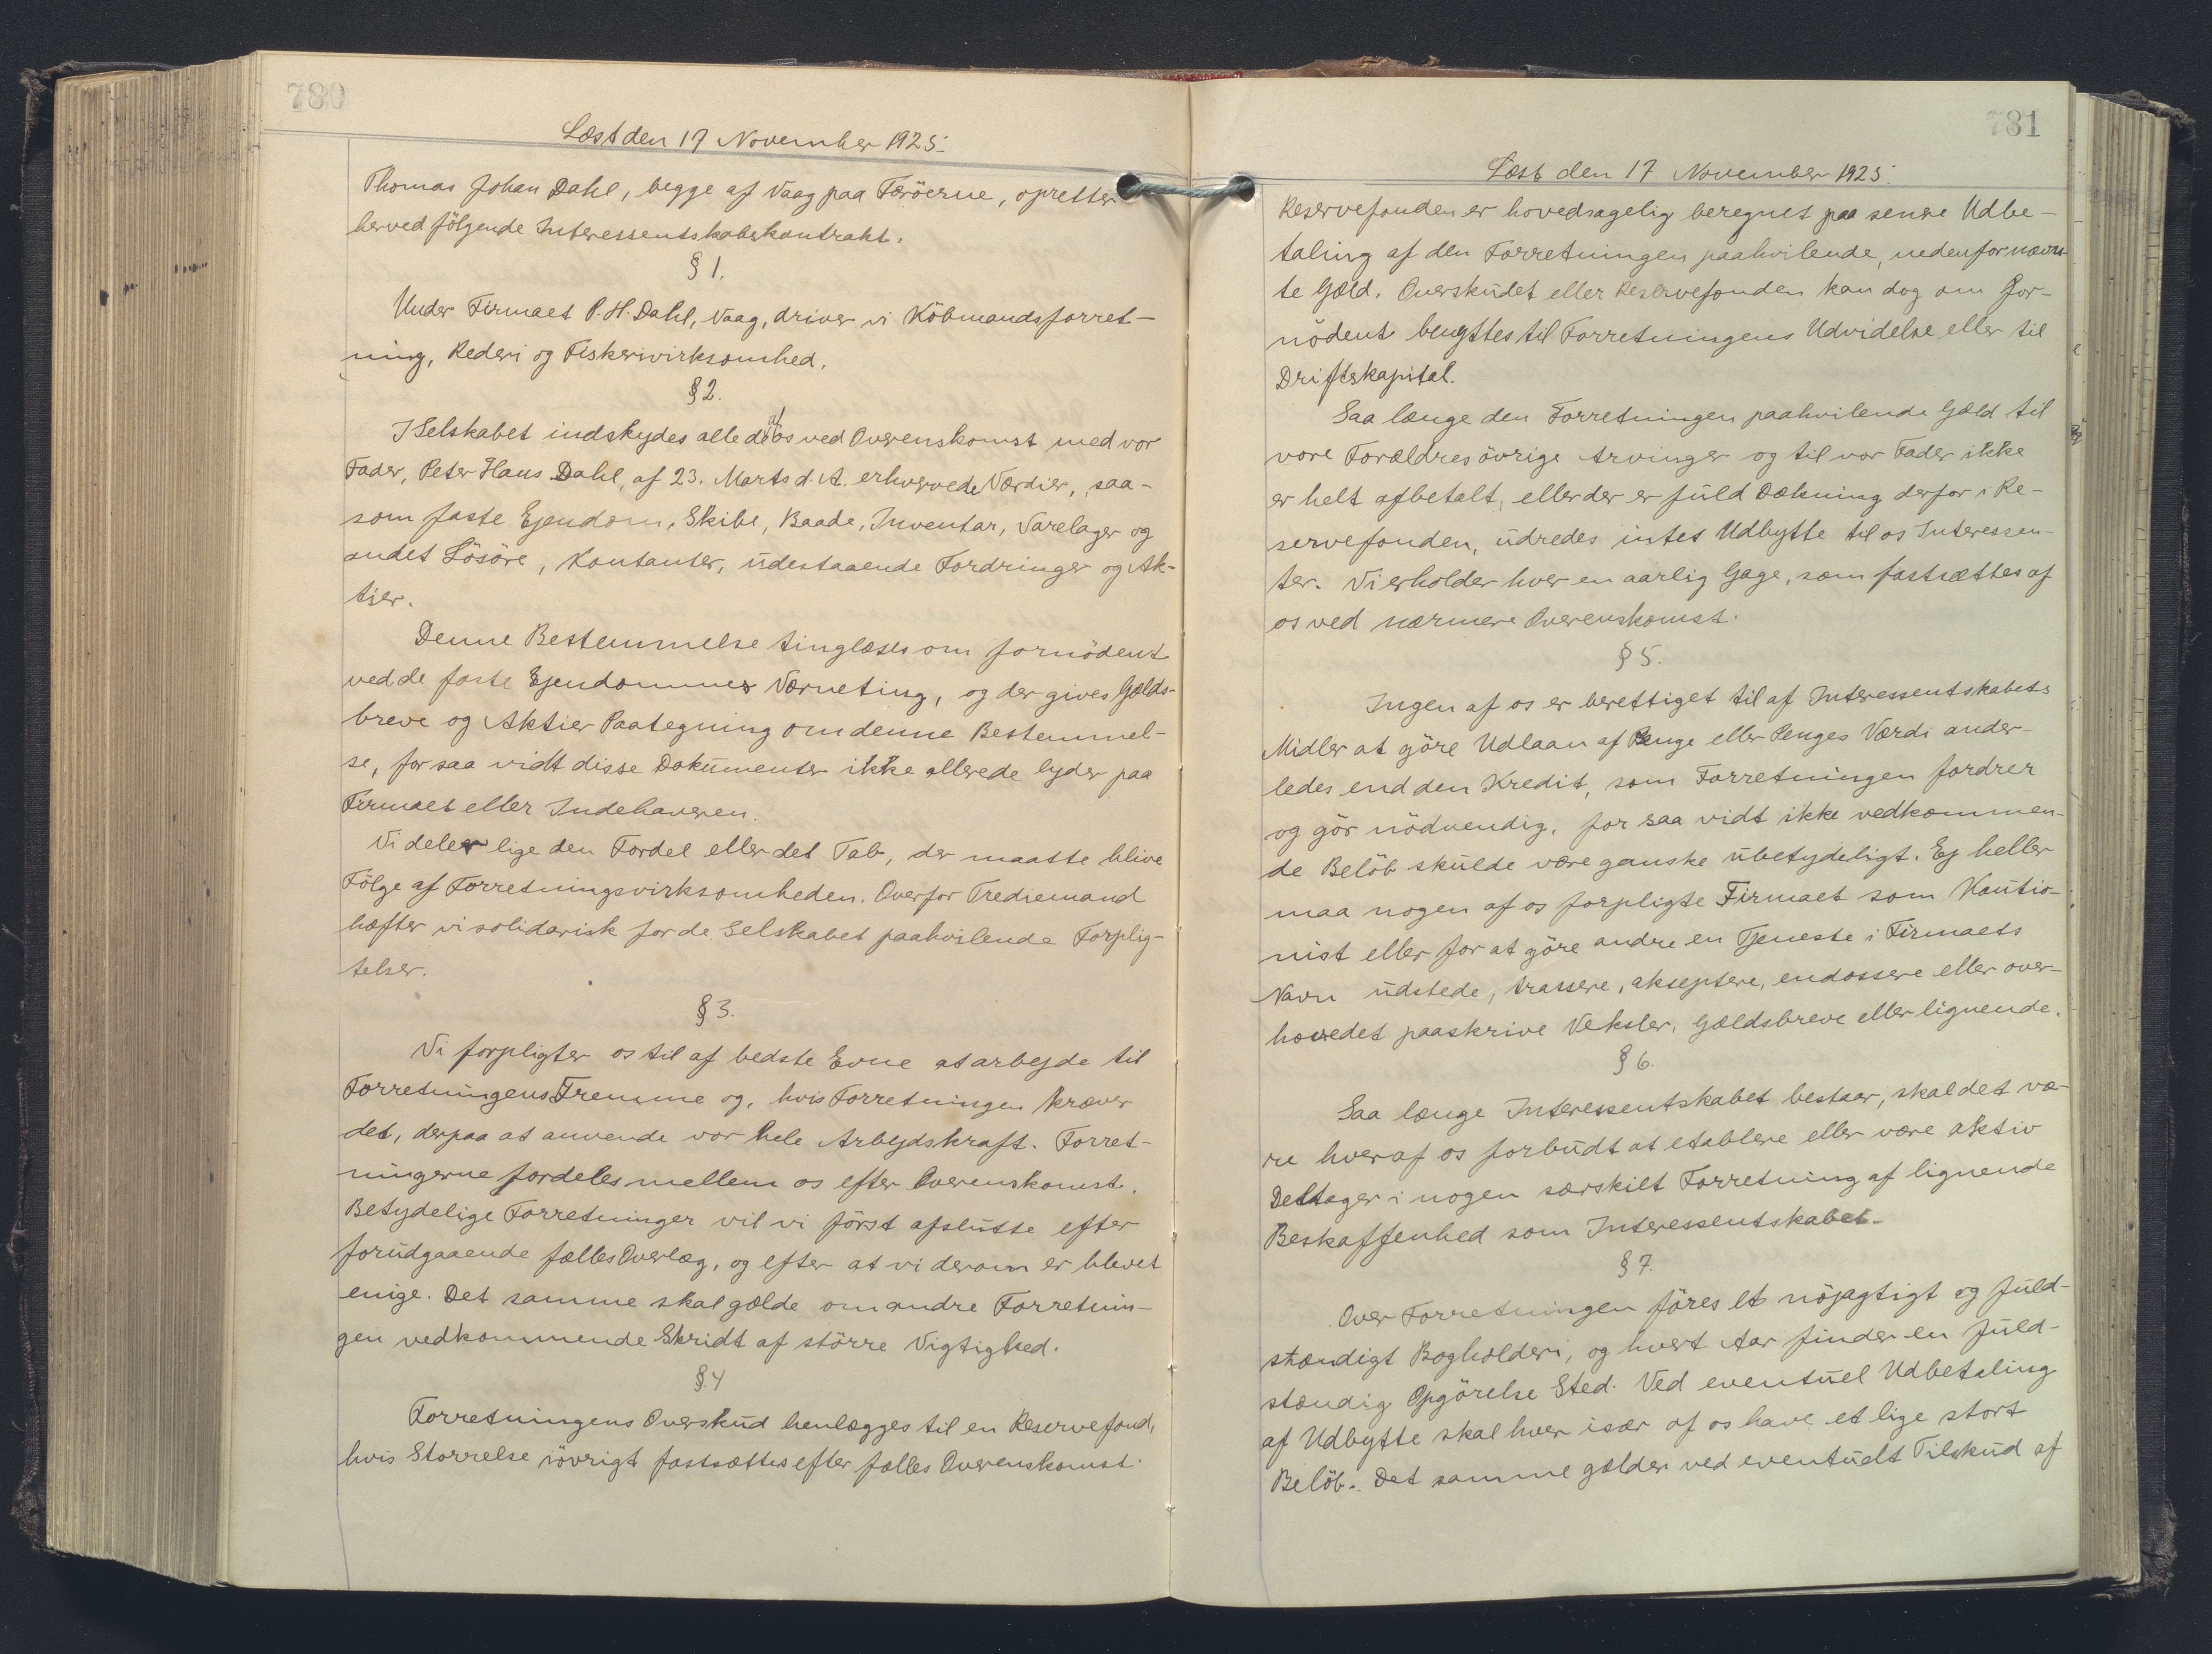 780
Læst den 17 November 1925.
Thomas Johan Dahl, begge af Vaag paa Færöerne, opretter
herved fölgende Interessentskabskontrakt.
§ 1.
Under Firmaet P. H. Dahl, Vaag, driver vi Köbmandsforret-
ning, Rederi og Fiskerivirksomhed.
§ 2.
I Selskabet indskydes alle de af os ved Overenskomst med vor
Fader, Peter Hans Dahl, af 23. Marts d. A. erhvervede Værdier, saa-
som faste Ejendom, Skibe, Baade, Inventar, Varelager og
andet Lösöre, Kontanter, udestaaende Fordringer og Ak-
tier.
Denne Bestemmelse tinglæses om fornödent
ved de faste Ejendommes Værneting, og der gives Gælds-
breve og Aktier Paategning om denne Bestemmel-
se, for saa vidt disse Dokumenter ikke allerede lyder paa
Firmaet eller Indehaveren.
Vi deler lige den Fordel eller det Tab, der maatte blive
Fölge af Forretningsvirksomheden. Overfor Trediemand
hæfter vi solidarisk for de Selskabet paahvilende Forplig-
telser.
§ 3.
Vi forpligter os til af bedste Evne at arbejde til
Forretningens Fremme og, hvis Forretningen kræver
det, derpaa at anvende vor hele Arbejdskraft. Forret-
ningerne fordeles mellem os efter Overenskomst.
Betydelige Forretninger vil vi först afslutte efter
forudgaaende fælles Overlæg, og efter at vi derom er blevet
enige. Det samme skal gælde om andre Forretnin-
gen vedkommende Skridt af större Vigtighed.
§ 4
Forretningens Overskud henlægges til en Reservefond,
hvis Storrelse iövrigt fastsættes efter fælles Overenskomst.
781
Læst den 17 November 1925.
Reservefonden er hovedsagelig beregnet paa senere Udbe-
taling af den Forretningen paahvilende, nedenfor nævn-
te Gæld. Overskudet eller Reservefonden kan dog om for-
nödent benyttes til Forretningens Udvidelse eller til
Driftskapital.
Saa længe den Forretningen paahvilende Gæld til
vore Forældres övrige Arvinger og til vor Fader ikke
er helt afbetalt, eller der er fuld Dækning derfor i Re-
servefonden, udredes intet Udbytte til os Interessen-
ter. Vi erholder hver en aarlig Gage, som fastsættes af
os ved nærmere Overenskomst.
§ 5.
Ingen af os er berettiget til af Interessentskabets
Midler at göre Udlaan af Penge eller Penges Værdi ander-
ledes end den Kredit, som Forretningen fordrer
og gör nödvendig, for saa vidt ikke vedkommen-
de Belöb skulde være ganske ubetydeligt. Ej heller
maa nogen af os forpligte Firmaet som Kautio-
nist eller for at göre andre en Tjeneste i Firmaets
Navn udstede, trassere, akseptere, endossere eller over-
hovedet paaskrive Veksler, Gældsbreve eller lignende.
§ 6.
Saa længe Interessentskabet bestaar, skal det væ-
re hver af os forbudt at etablere eller være aktiv
Deltager i nogen særskilt Forretning af lignende
Beskaffenhed som Interessentskabet.
§ 7.
Over Forretningen föres et nöjagtigt og fuld-
stændigt Bogholderi, og hvert Aar finder en fuld-
stændig Opgörelse Sted. Ved eventuel Udbetaling
af Udbytte skal hver især af os have et lige stort
Belöb. Det samme gælder ved eventuelt Tilskud af